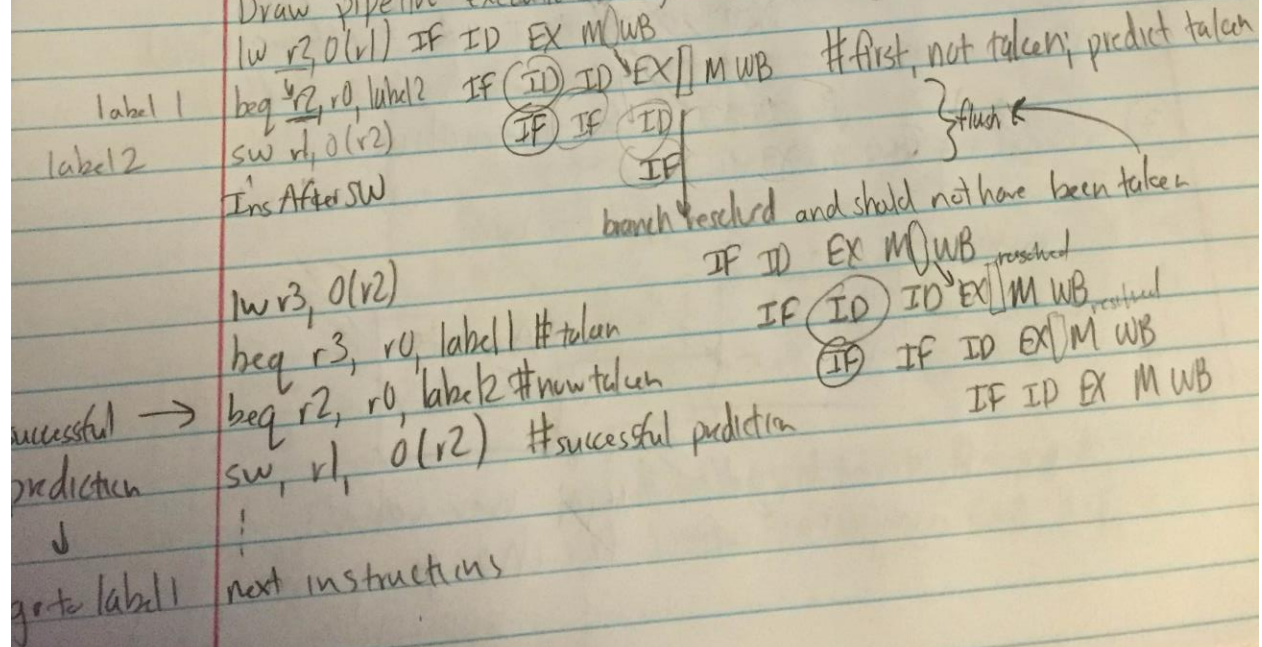 Draw pipeline
lw r2, 0(r1) IF ID EX M WB
label 1 beq r2, r0, label2 IF ID ID EX M WB #first, not taken; predict taken
label2 sw r1, 0(r2) IF IF ID } flush
Ins After SW IF
branch resolved and should not have been taken
lw r3, 0(r2) IF ID EX M WB resolved
beq r3, r0, label1 #taken IF ID ID EX M WB resolved
successful → beq r2, r0, label2 #now taken IF IF ID EX M WB
prediction sw, r1, 0(r2) #successful prediction IF ID EX M WB
↓ ⋮
go to label1 next instructions